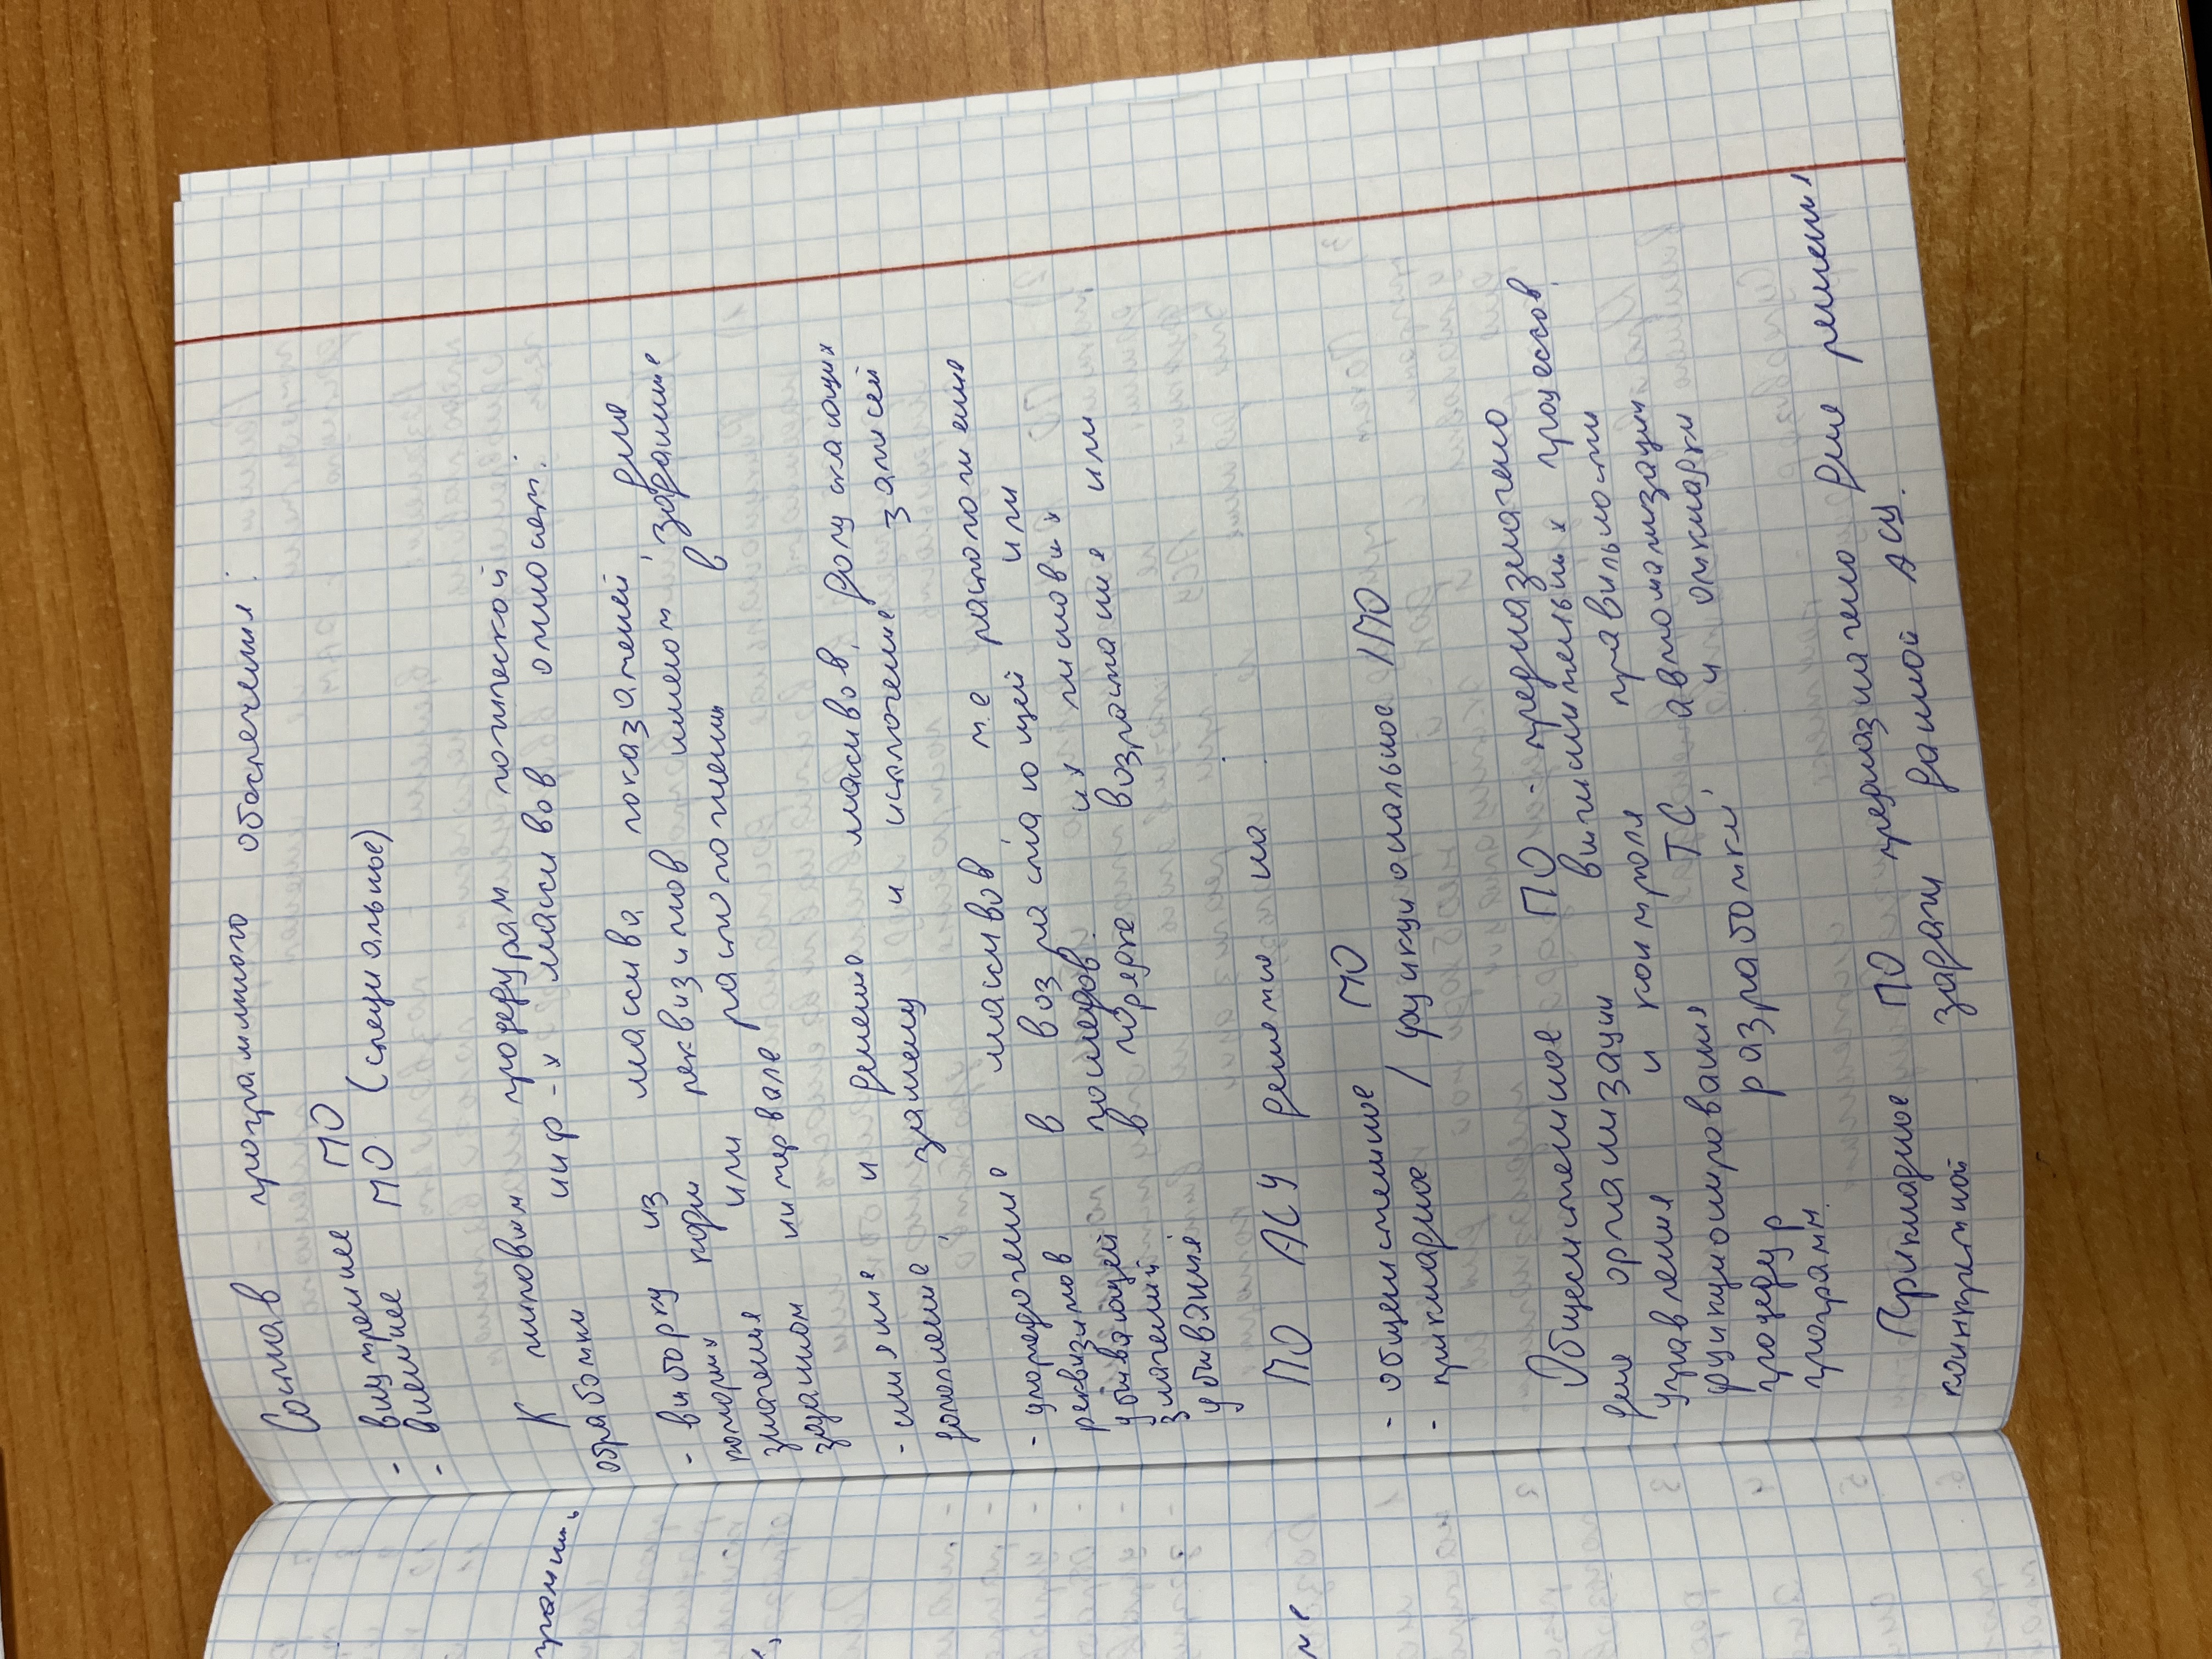 Состав программного обеспечения:
- внутренее ПО
- внешнее ПО (специальное)
К типовым процедурам логической
обработки инф-х массивов относят:
- выборку из массива показателей, для
которых коды реквизитов имеют заданные
значения или расположены в
заданном интервале
- слияние и деление массивов, допускающих
дополнение, замену и исключение записей
- упорядочение массивов т.е расположение
реквизитов в возрастающей или
убивающей последов. их числовых
значений в порядке возрастание или
убивания.
ПО АСУ делится на:
- общесистемное ПО
- прикладное / функциональное / ПО
Общесистемное ПО - предназначено
для организации вычислительных процессов,
управления и контроля правильности
функционирования ТС, автоматизации
процедур разработки и отладки
программ.
Прикладное ПО предназначено для решения
конкретной задачи данной АСУ.